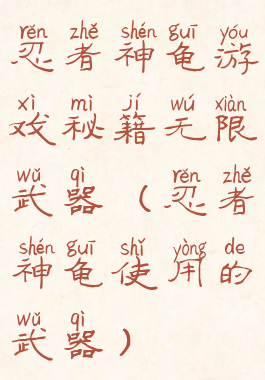 rěn zhě shén guī yóu
忍者神龟游
xì mì jí wú xiàn
戏秘籍无限
wǔ qì rěn zhě
武器（忍者
shén guī shǐ yòng de
神龟使用的
wǔ qì
武器）